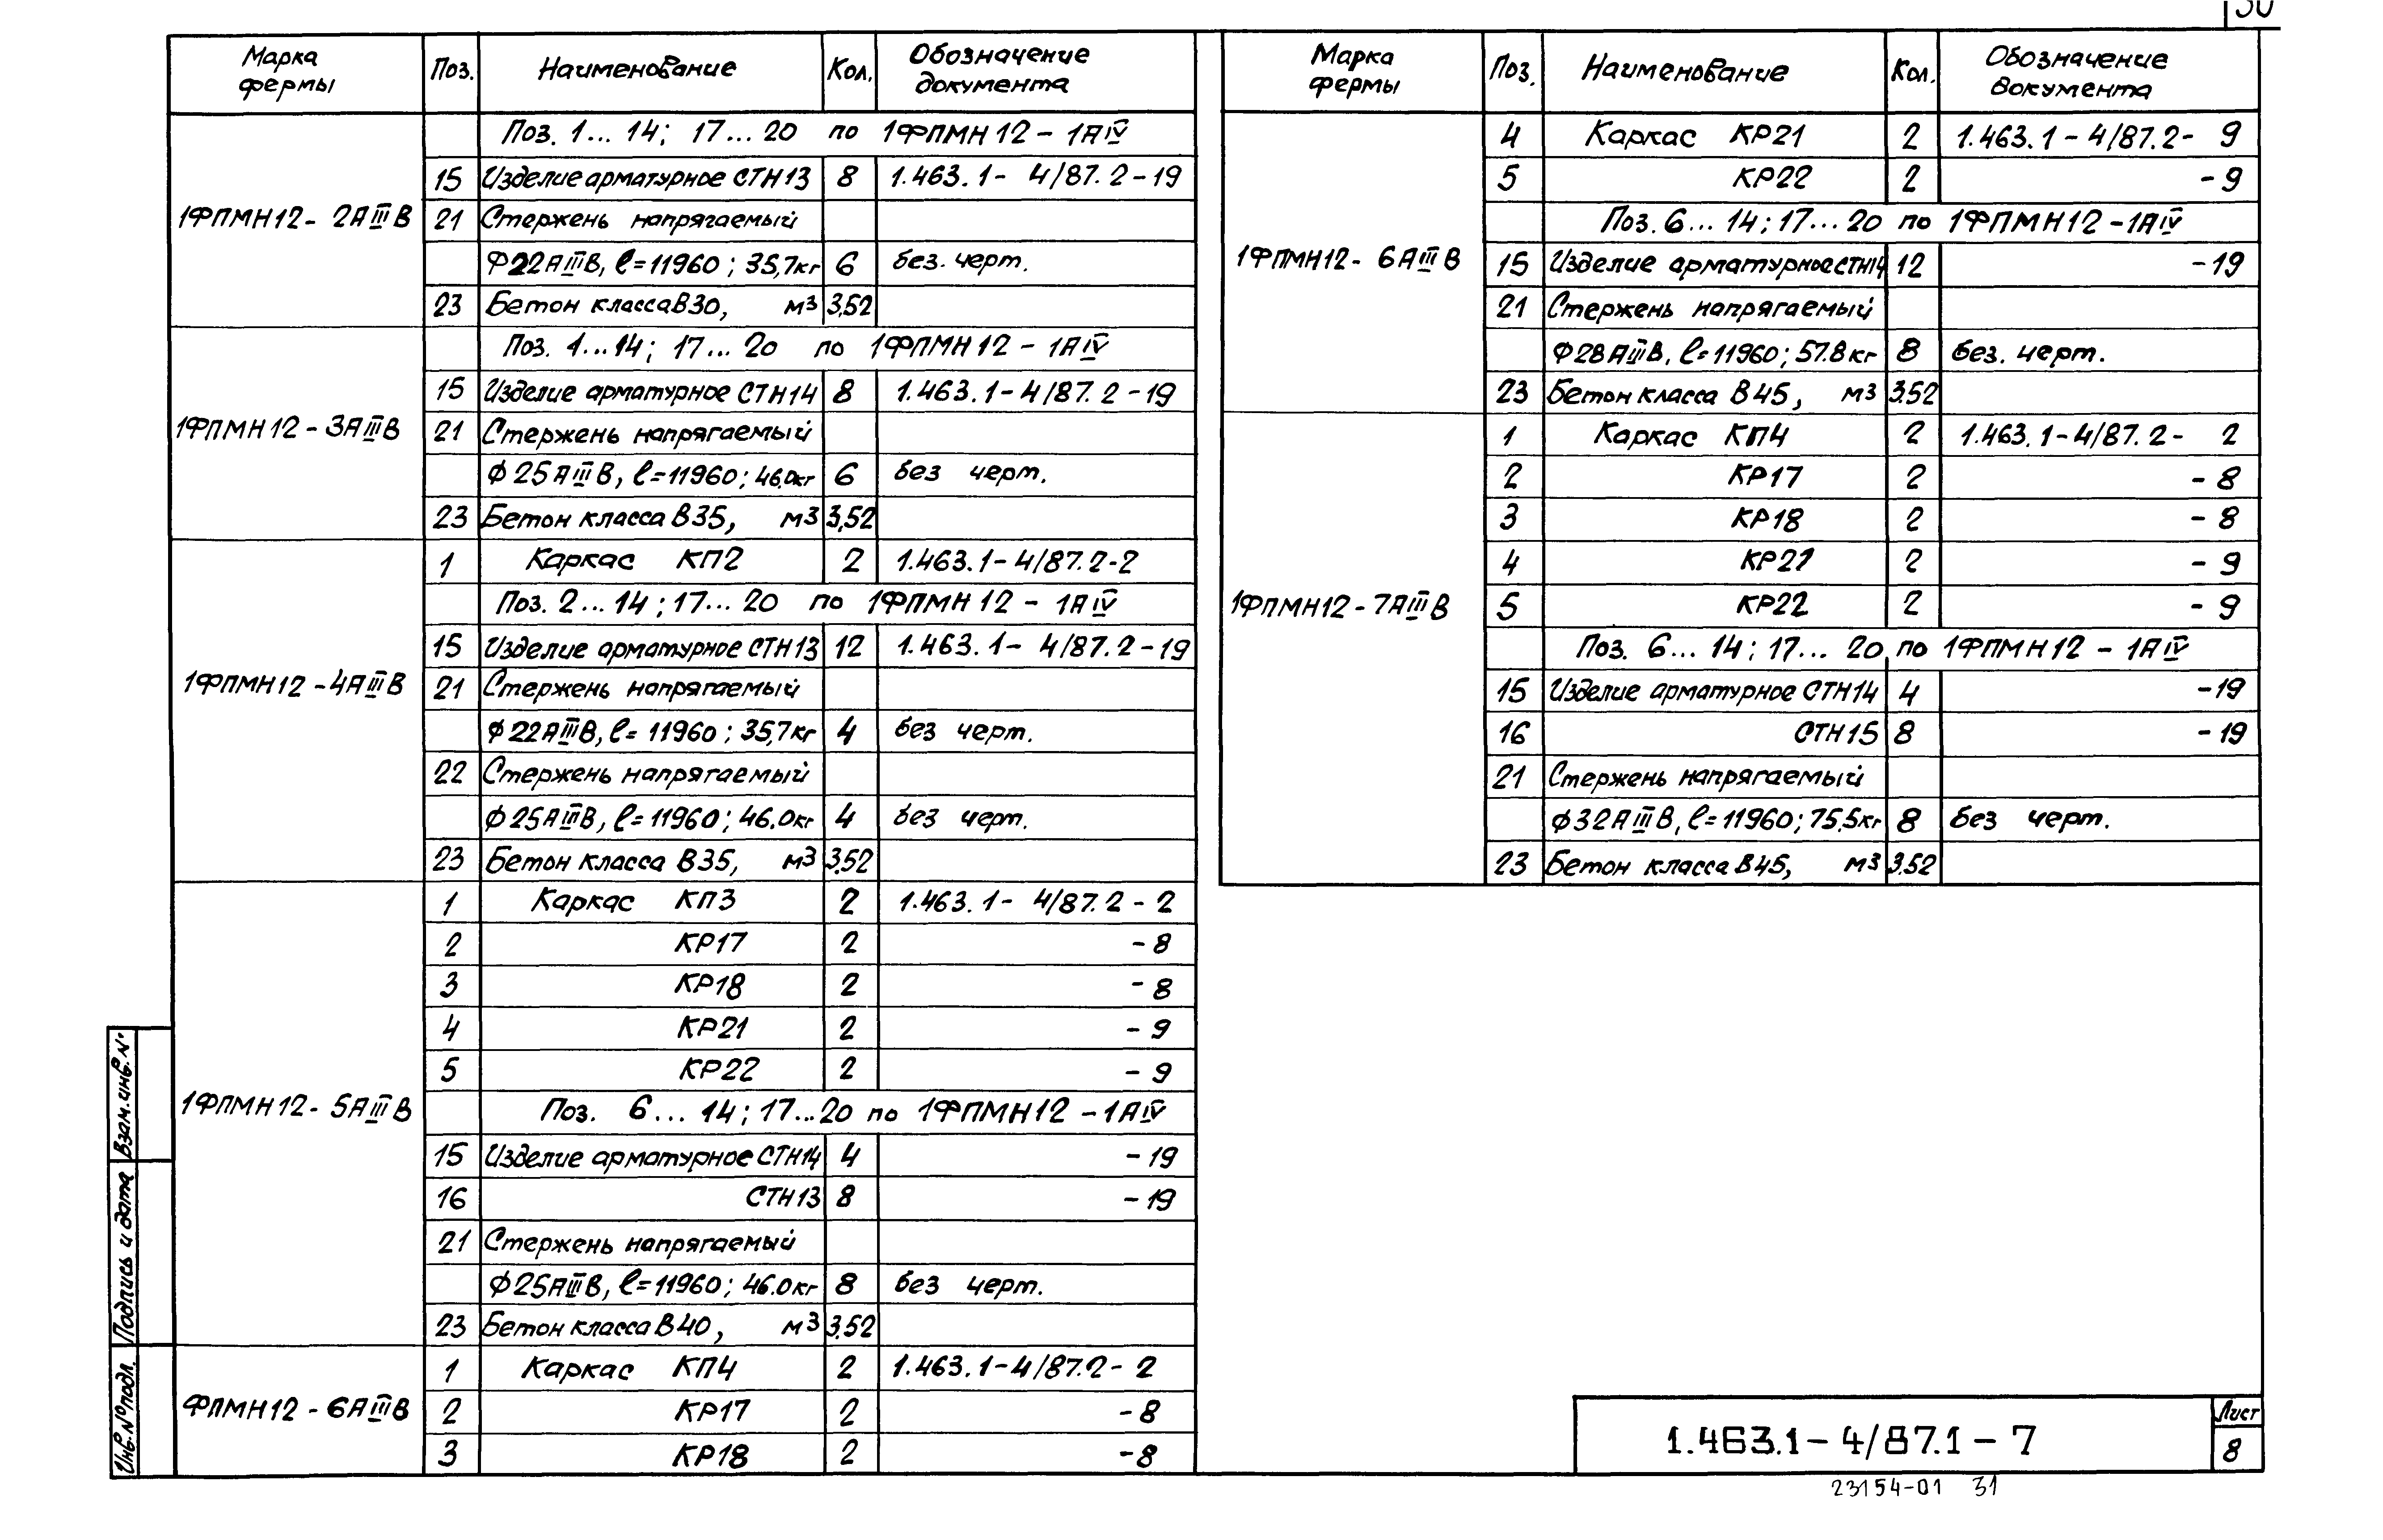 30
Марка фермы Поз. Наименование Кол. Обозначение документа
Поз. 1... 14; 17... 20 по 1ФПМН12-1АIV
1ФПМН12-2АIIIВ
15 Изделие арматурное СТН13 8 1.463.1-4/87.2-19
21 Стержень напрягаемый
Ф22АIIIВ, ℓ=11960; 35,7кг 6 без. черт.
23 Бетон класса В30, м3 3,52
Поз. 1...14; 17... 20 по 1ФПМН12-1АIV
1ФПМН12-3АIIIВ
15 Изделие арматурное СТН14 8 1.463.1-4/87.2-19
21 Стержень напрягаемый
Ф25АIIIВ, ℓ=11960; 46.0кг 6 без черт.
23 Бетон класса В35, м3 3,52
1ФПМН12-4АIIIВ
1 Каркас КП2 2 1.463.1-4/87.2-2
Поз. 2...14; 17... 20 по 1ФПМН12-1АIV
15 Изделие арматурное СТН13 12 1.463.1-4/87.2-19
21 Стержень напрягаемый
Ф22АIIIВ, ℓ=11960; 35,7кг 4 без черт.
22 Стержень напрягаемый
Ф25АIIIВ, ℓ=11960; 46.0кг 4 без черт.
23 Бетон класса В35, м3 3,52
1ФПМН12-5АIIIВ
1 Каркас КП3 2 1.463.1-4/87.2-2
2 КР17 2 -8
3 КР18 2 -8
4 КР21 2 -9
5 КР22 2 -9
Поз. 6... 14; 17...20 по 1ФПМН12-1АIV
15 Изделие арматурное СТН14 4 -19
16 СТН13 8 -19
21 Стержень напрягаемый
Ф25АIIIВ, ℓ=11960; 46.0кг 8 без черт.
23 Бетон класса В40, м3 3,52
ФПМН12-6АIIIВ
1 Каркас КП4 2 1.463.1-4/87.2-2
2 КР17 2 -8
3 КР18 2 -8
Марка фермы Поз. Наименование Кол. Обозначение документа
1ФПМН12-6АIIIВ
4 Каркас КР21 2 1.463.1-4/87.2-9
5 КР22 2 -9
Поз. 6... 14; 17... 20 по 1ФПМН12-1АIV
15 Изделие арматурное СТН14 12 -19
21 Стержень напрягаемый
Ф28АIIIВ, ℓ=11960; 57.8кг 8 без. черт.
23 Бетон класса В45, м3 3.52
1ФПМН12-7АIIIВ
1 Каркас КП4 2 1.463.1-4/87.2-2
2 КР17 2 -8
3 КР18 2 -8
4 КР21 2 -9
5 КР22 2 -9
Поз. 6... 14; 17... 20 по 1ФПМН12-1АIV
15 Изделие арматурное СТН14 4 -19
16 СТН15 8 -19
21 Стержень напрягаемый
Ф32АIIIВ, ℓ=11960; 75,5кг 8 без черт.
23 Бетон класса В45, м3 3.52
Взам.инв.N
Подпись и дата
Инв.№подл.
1.463.1-4/87.1-7
Лист
8
23154-01 31